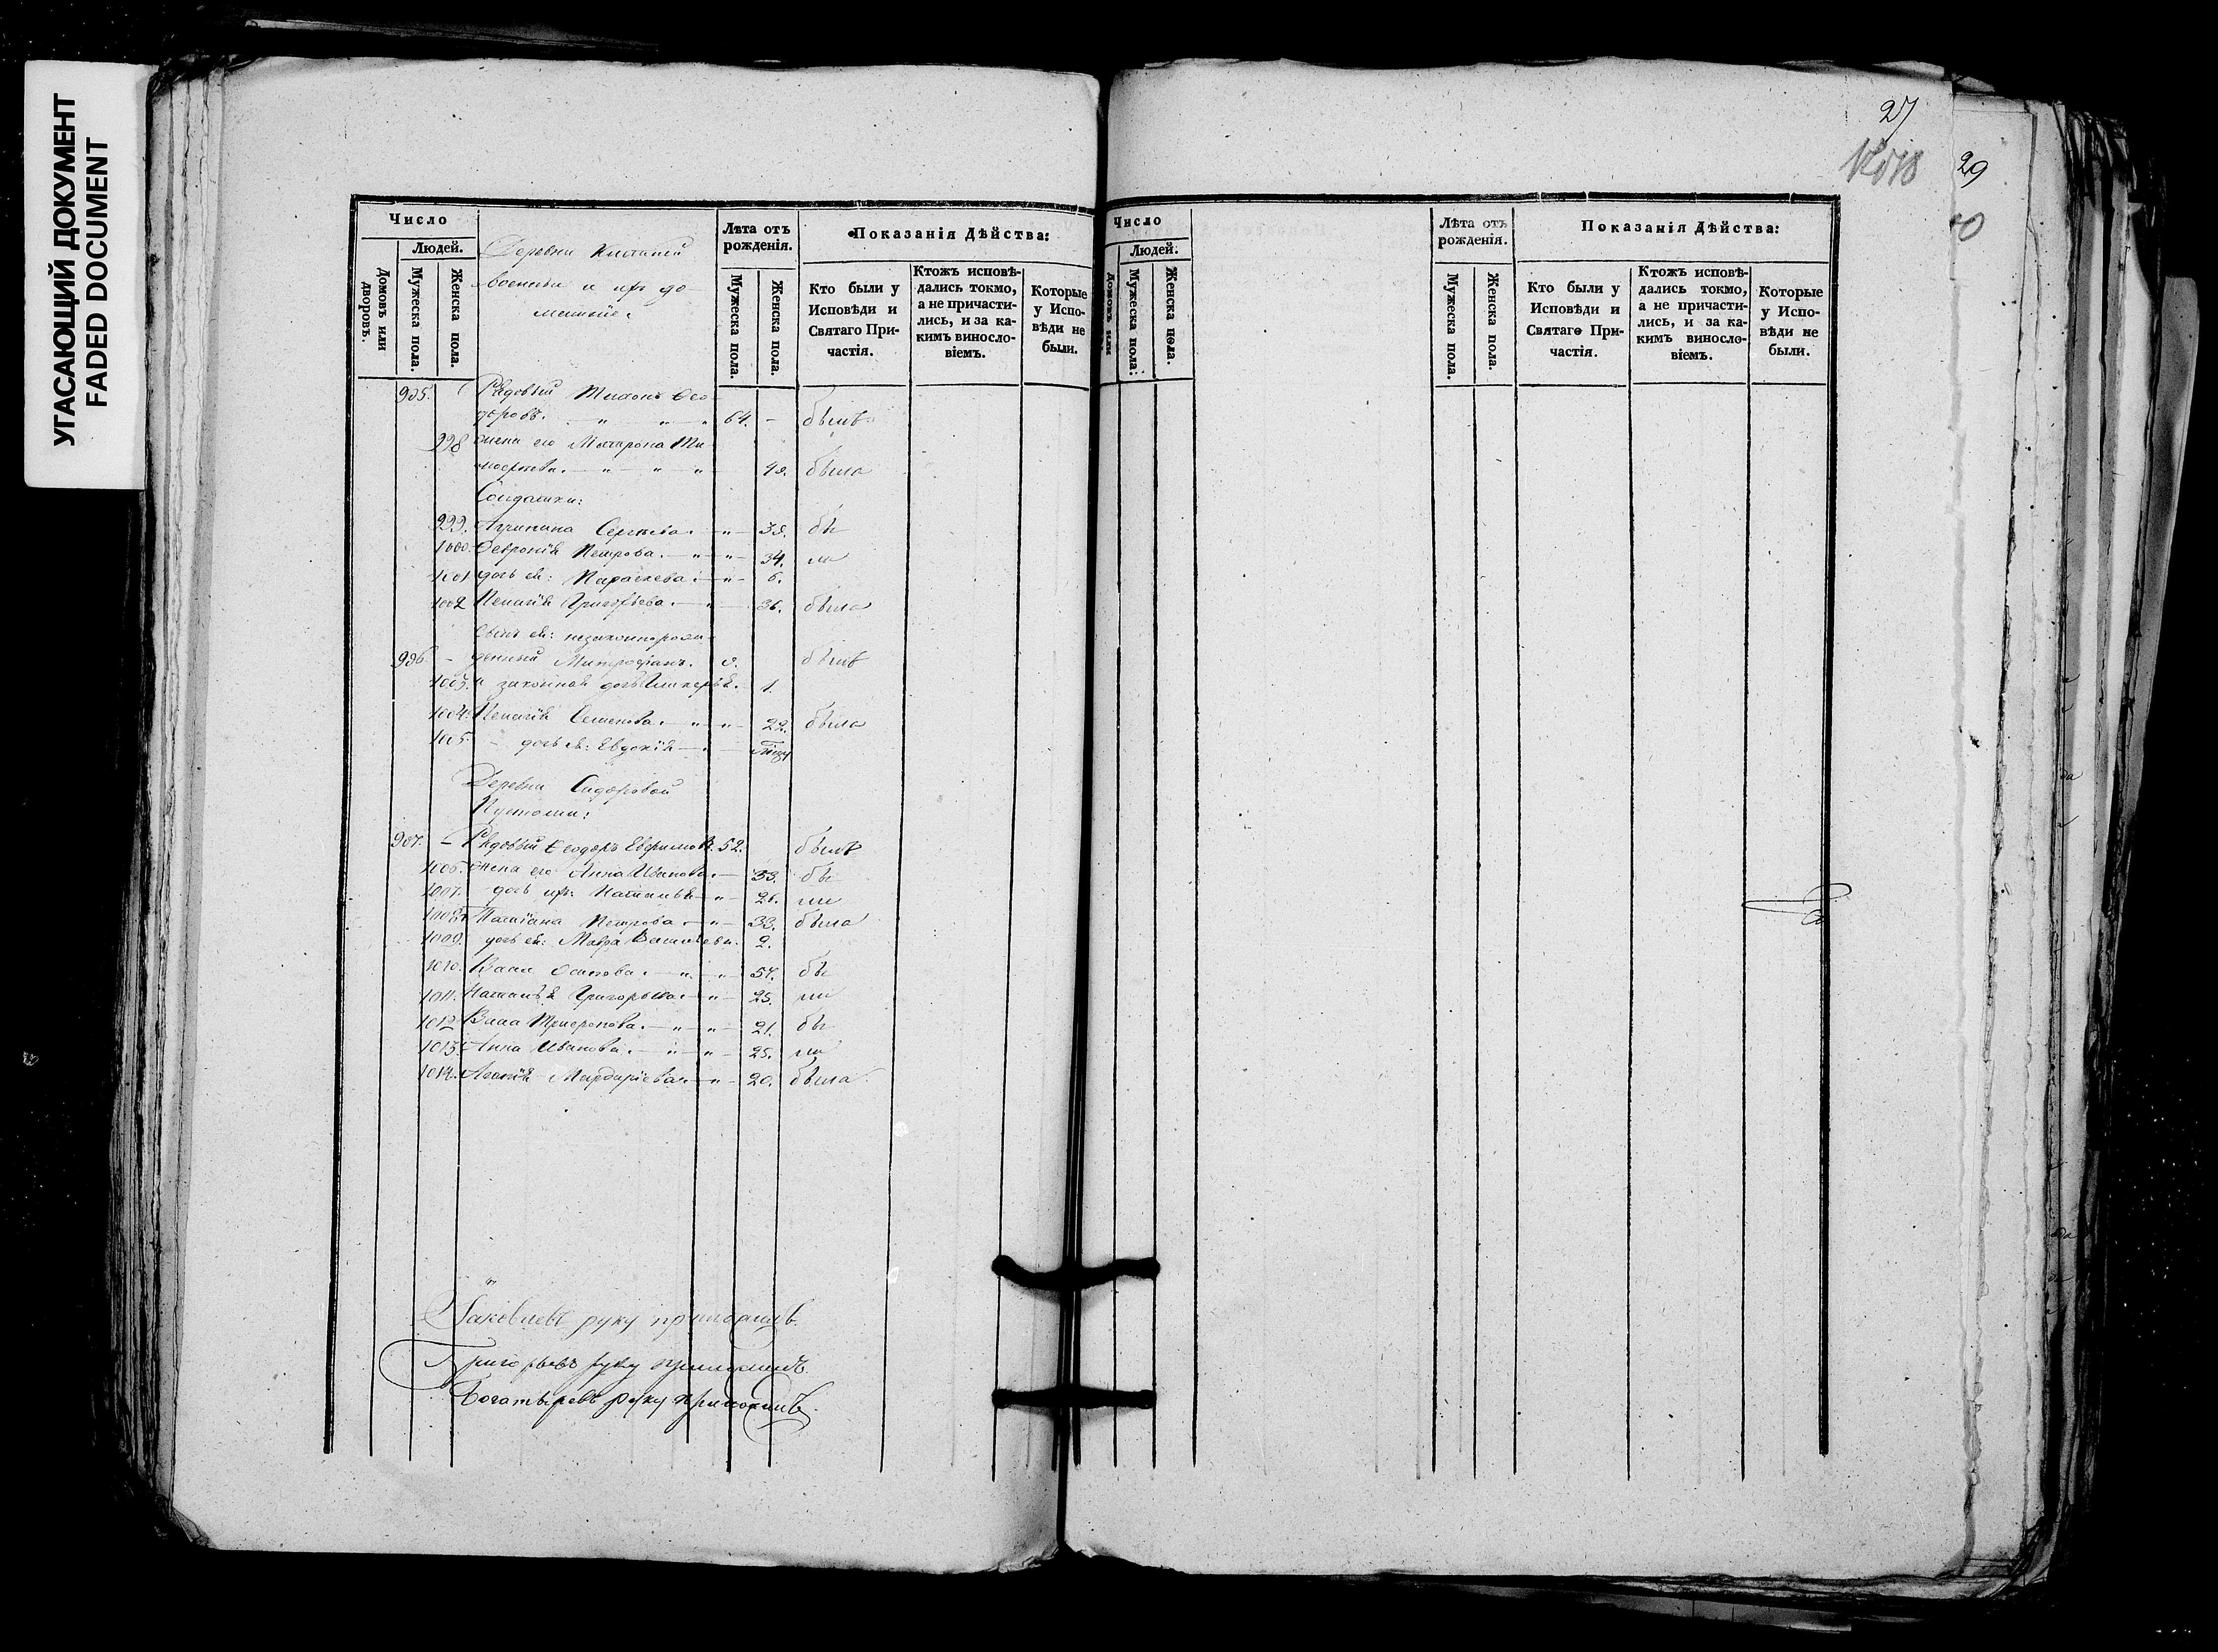 УГАСАЮЩИЙ ДОКУМЕНТ
FADED DOCUMENT
Число
Людей.
Домовъ или дворовъ.
Мужеска пола.
Женска пола.
Лѣта отъ рожденія.
Мужеска пола.
Женска пола.
Показанія Дѣйства:
Кто были у Исповѣди и Святаго Причастія.
Ктожъ исповѣдались токмо, а не причастились, и за какимъ винословіемъ.
Которые у Исповѣди не были.
Деревни
военныи и ихъ до-
машніе.
935. Рядовый Тихонъ Ѳео-
доровъ. 64. былъ
998 жена его Матрона Ти-
моѳеева. была
Солдатки:
999. Агрипина Сергѣева. 38. бы
1000. Ѳевронія Петрова. 34. ли
1001 дочь ея: Параскева. 6.
1002 Пелагія Григорьева. 36. была
сынъ ея: незаконнорож-
936. денный Митрофанъ. 8. былъ
1003. и законная дочь Гликерія. 1.
1004. Пелагія Семенова. 22. была
1005. дочь ея: Евдокія
Деревни Сидоровой
Пустоши:
937. Рядовый Ѳеодоръ Ефимовъ. 52. былъ
1006. жена его Анна Иванова. 53. бы
1007. дочь ихъ Наталья 26. ли
1008. Татіана Петрова. 33. была
1009. дочь ея: Мавра Васильева. 2.
1010. Васса Осипова. 54. бы
1011. Наталья Григорьева. 25. ли
1012 Васса Трифонова. 21. бы
1013. Анна Иванова. 25. ли
1014. Агафія Мардаріева 20. была
Яковлевъ руку приложилъ.
Григорьевъ руку приложилъ.
Богатыревъ руку приложилъ.
27
Число
Людей.
Мужеска пола.
Женска пола.
Лѣта отъ рожденія.
Мужеска пола.
Женска пола.
Показанія Дѣйства:
Кто были у Исповѣди и Святаго Причастія.
Ктожъ исповѣдались токмо, а не причастились, и за какимъ винословіемъ.
Которые у Исповѣди не были.
29